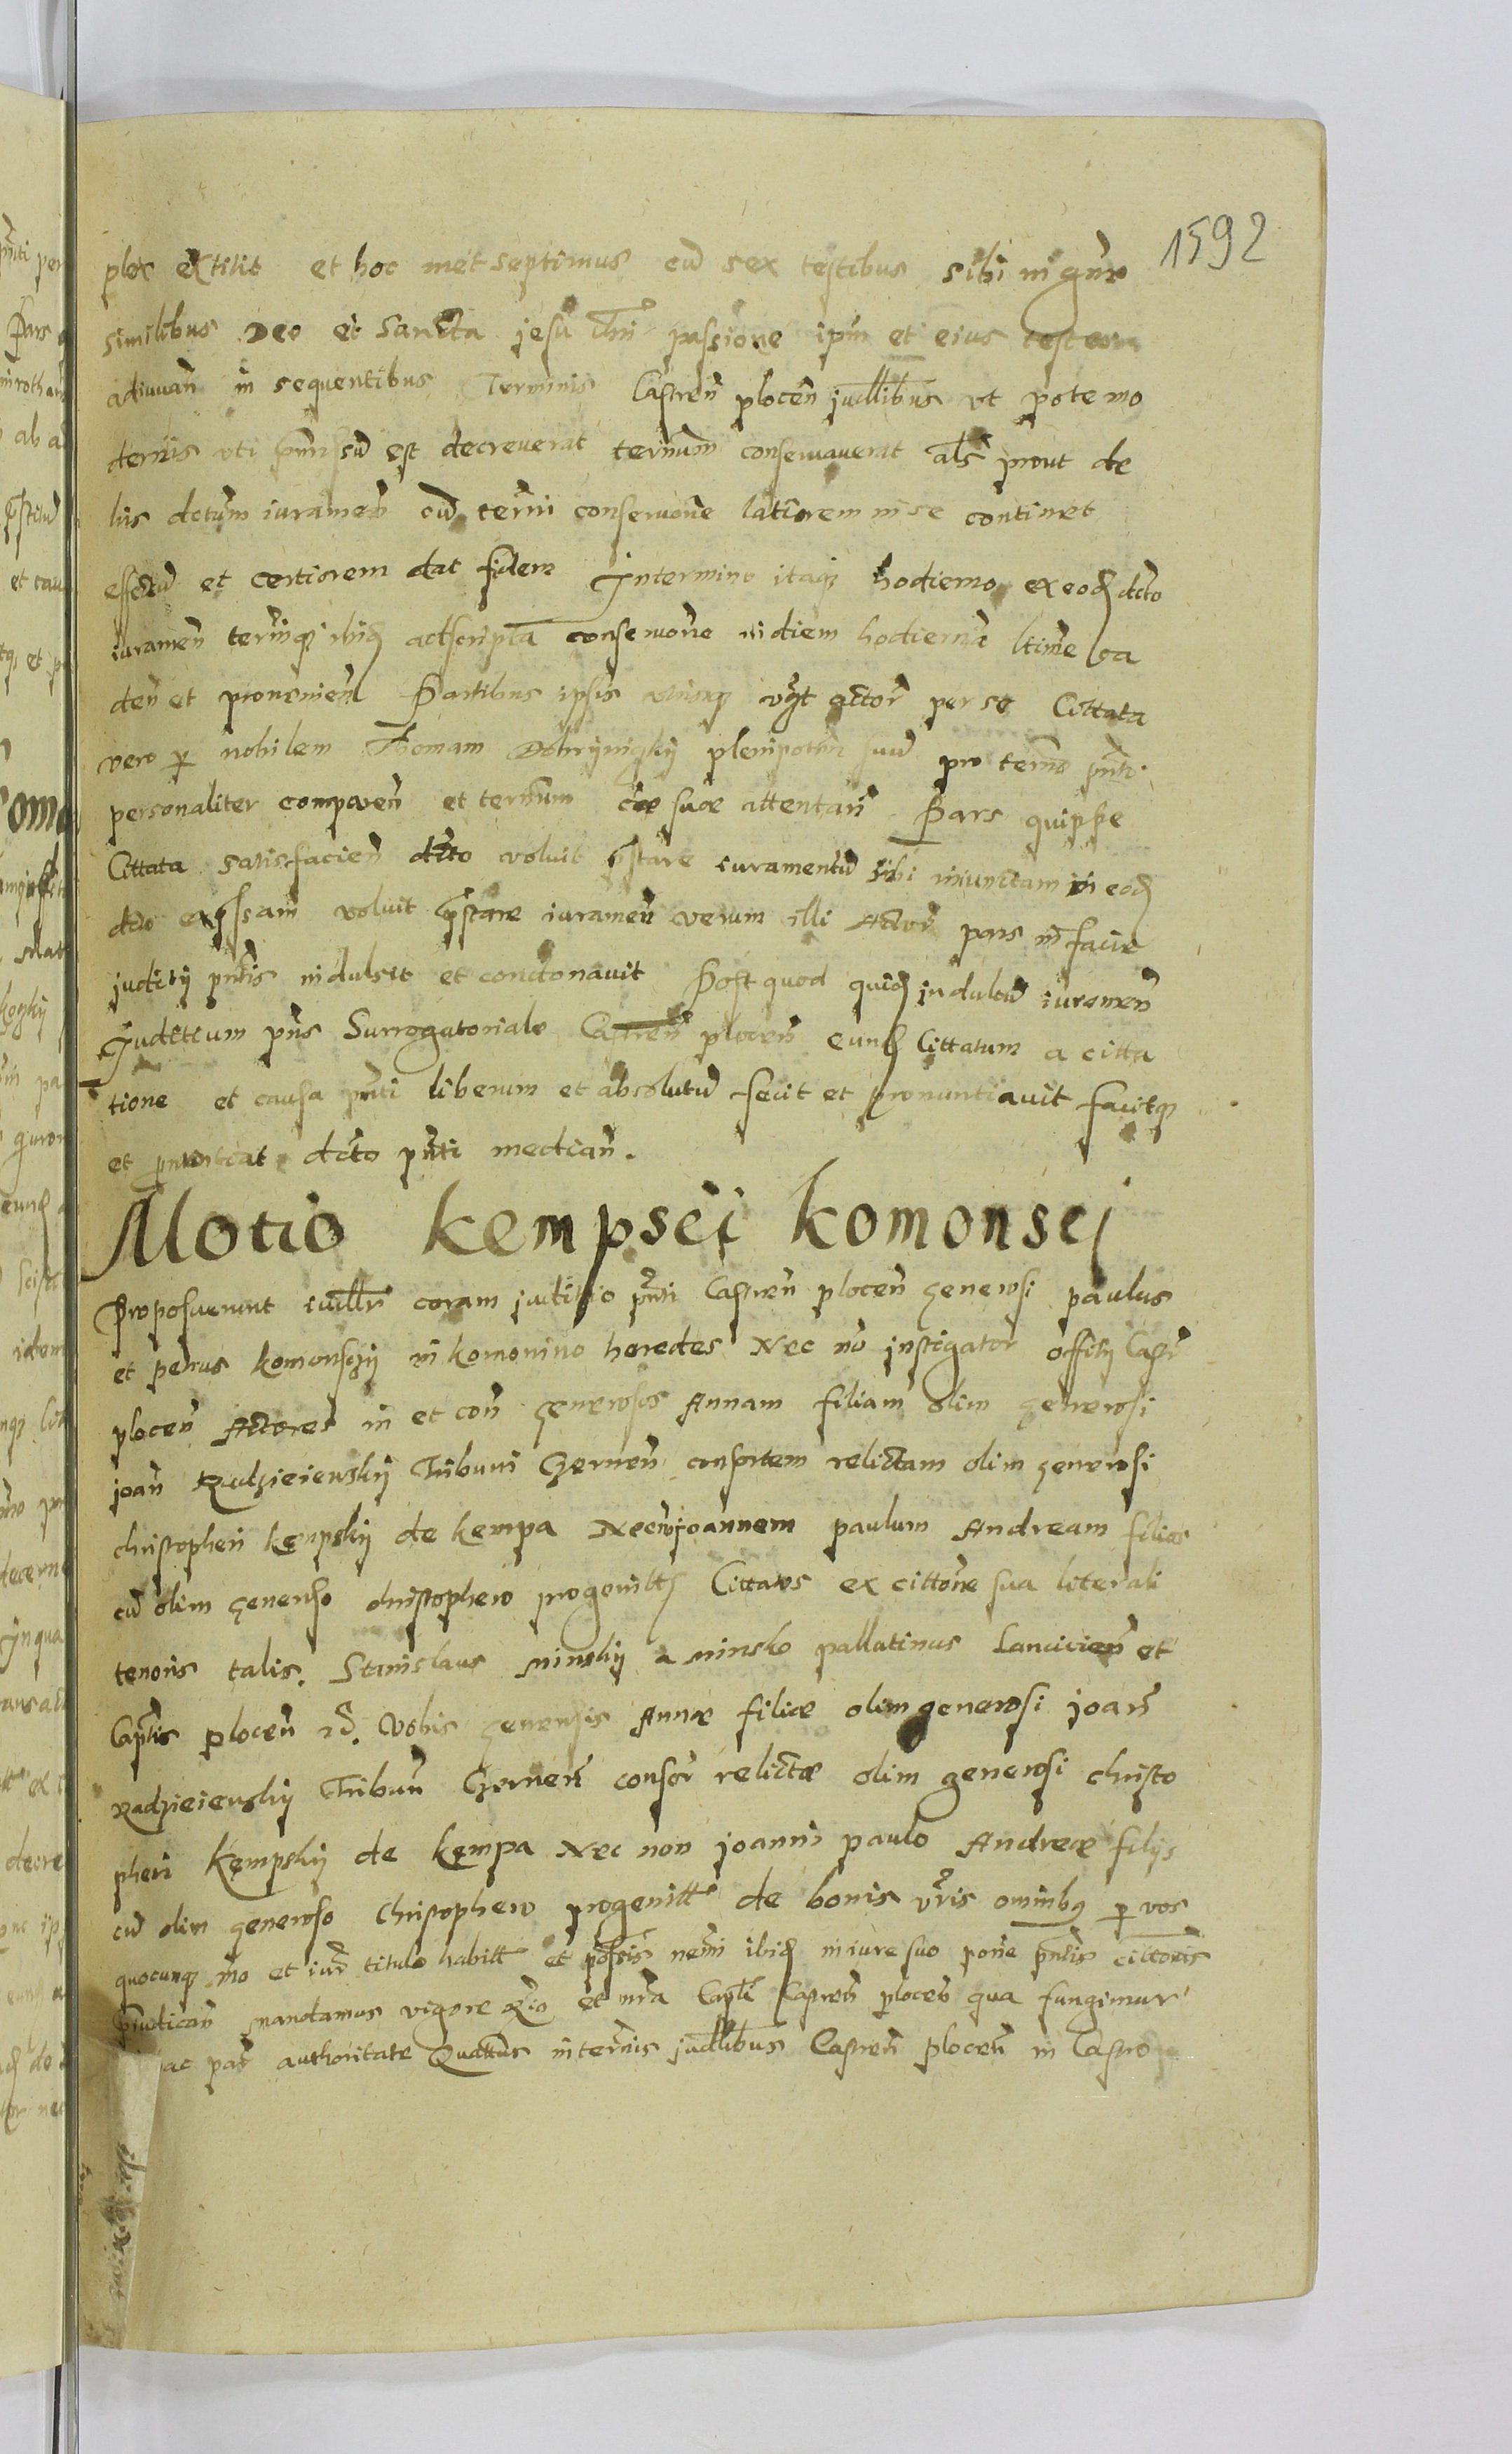 1592
plex extitit et hoc met septimus cū sex testibus sibi in gnre
similibus Deo et Sancta jesu Chri passione ipm et eius testem
adiuvan̄ in sequentibus Terminis Castren̄ plocen̄ judllibus ut pote mo
dernis uti pmissū est decreverat termum conservaverat als prout de
his dctum iuramen̄ cū termi conservone latiorem in se continet
effectū et certiorem dat fidem Jn termino itaq hodierno ex eod dcto
iuramen̄ termiq ibid adscripta conservone in diem hodiernā ltime ca
den̄ et provenien̄ Partibus ipsis utrisq actor per se Cittata
vero p nobilem Thomam plenipoten̄ suū pro termo pnti
personaliter comparen̄ et termum cae suae attentan̄ Pars quippe
Cittata satisfacien̄ dcto voluit pstare iuramentū sibi iniunctam in eod
dcto expssam voluit pstare iuramen̄ verum illi Actor pars in facie
juditij pntis indulsit et condonavit Post quod quid indultū iuramen̄
Juditium pns Surrogatoriale Castren̄ plocen̄ eund Cittatum a citta
tione et causa pnti liberum et absolutū fecit et pronuntiavit facitq
et pnuntiat dcto pnti median̄.
Motio kempsci komonsci
Proposuerunt iudllr coram juditio pnti Castren̄ plocen̄ generosi paulus
et petrus komonsczij in komonino heredes Nec nō jnstigator offitij Castr
plocen̄ Actores in et con̄ generosos Annam filiam olim generosi
joan̄ Radzieiewskij Tribuni Czernen̄ consortem relictam olim generosi
christopheri kempskij de kempa Necnō joannem paulum Andream filios
cū olim generoso christophero progenitt Cittatos ex cittone sua literali
tenoris talis. Stanislaus minskij a minsko pallatinus Lanciciens̄ et
Captis plocen̄ Vobis generosis Annae filiae olim generosi joan̄
Radzieiewskij Tribun̄ Czernen̄ consor relictae olim generosi christo
pheri Kempskij de kempa Nec non joanni paulo Andreae filijs
cū olim generoso Christophero progenitt de bonis vris omnibq p vos
quocunq mo et iur titulo habitt et possis nemi ibid in iure suo pone pntis cittonis
piudican̄ mandamus vigore et nra Captli Castren̄ plocen̄ qua fungimur
ac par authoritate Quattus in termis judllibus Castren̄ plocen̄ in Castro